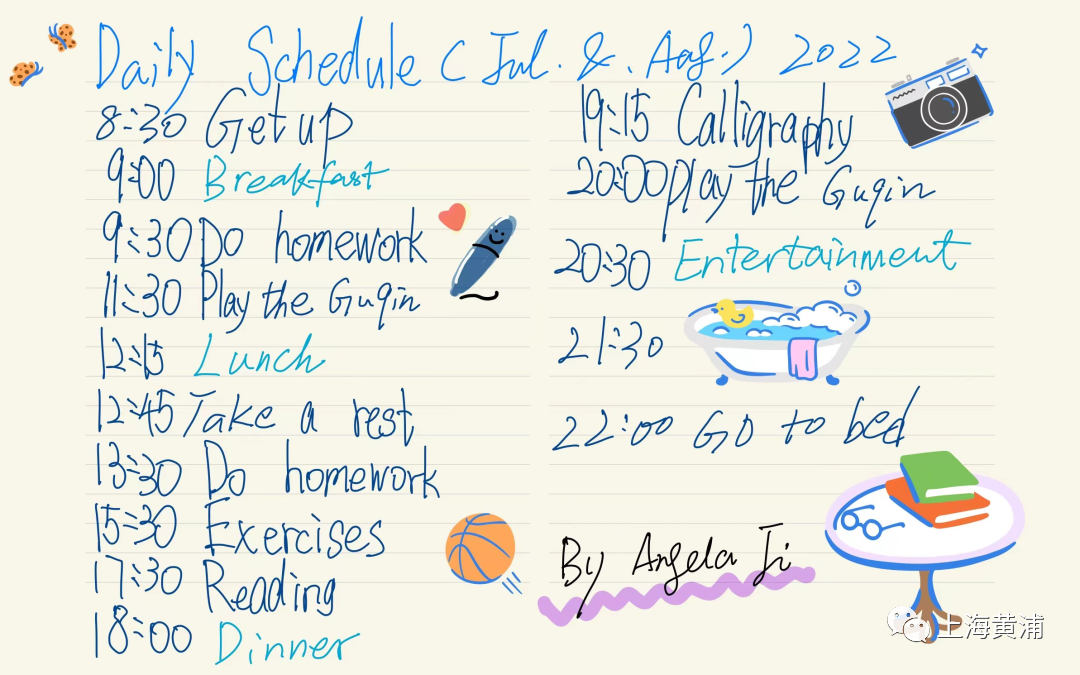 Daily Schedule ( Jul. & . Aug.) 2022
8:30 Get up
9:00 Breakfast
9:30 Do homework
11:30 Play the Guqin
12:15 Lunch
12:45 Take a rest
13:30 Do homework
15:30 Exercises
17:30 Reading
18:00 Dinner
19:15 Calligraphy
20:00 play the Guqin
20:30 Entertainment
21:30
22:00 Go to bed
By Angela Ji
上海黄浦